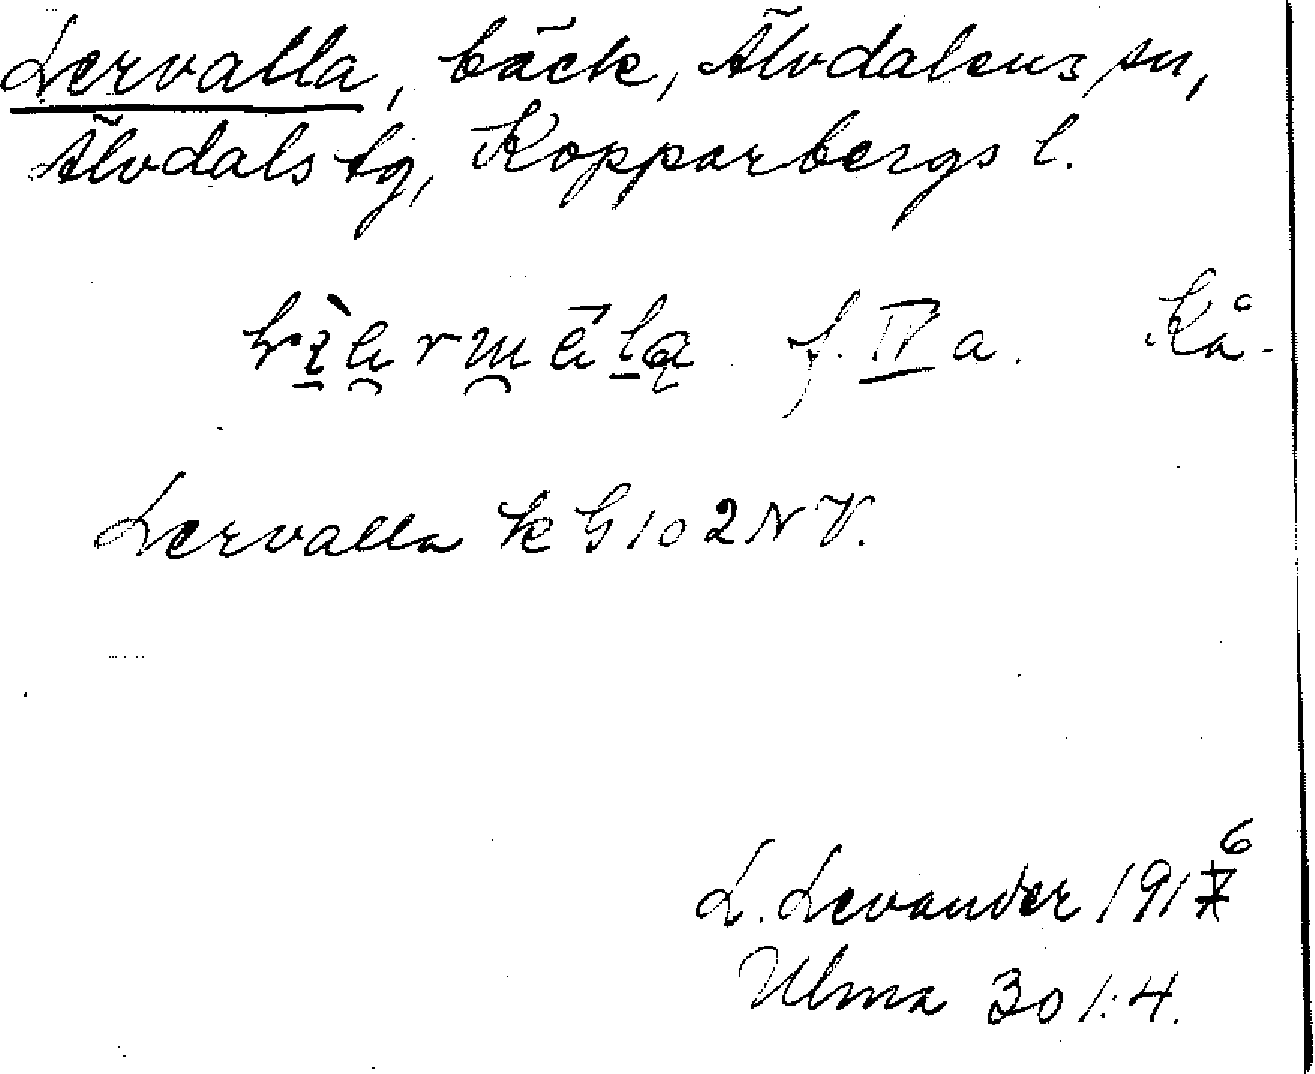 Lervalla, bäck, Älvdalens sn,
Älvdals tg, Kopparbergs l.
f. IV a. Kå-
Lervalla k G 102 NV.
L. Levander 1916
Ulma 301:4.